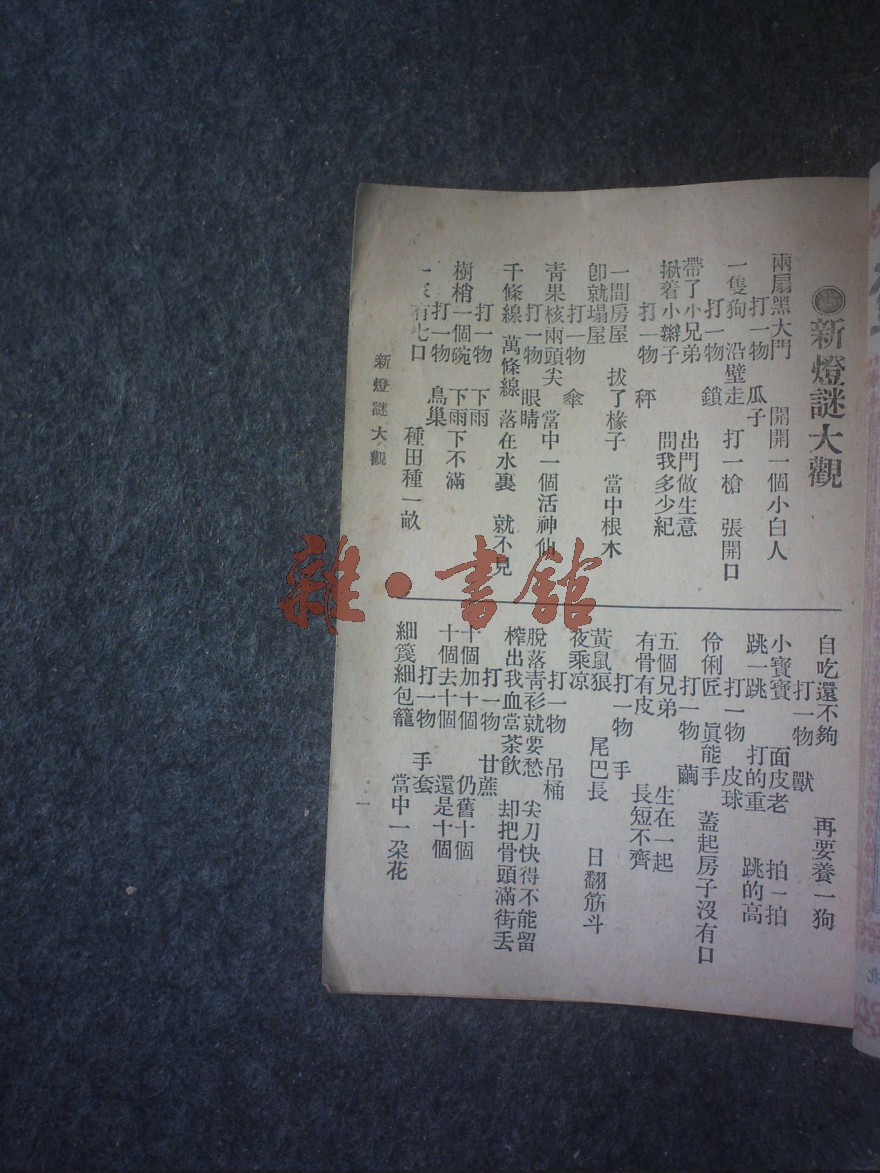 新燈謎大觀
兩扇黑大門　開開一個小白人
打一物　瓜子
一隻狗　沿壁走　打一槍　張開口
打一物　鎖
帶了小兄弟　出門做生意
揪着小辮子　問我多少紀
打一物　秤
一間房屋　拔了椽子　當中根木
卽就塌屋
打一物　傘
青果核兩頭尖　當中一個活神仙
打一物　眼睛
千條線　萬條線　落在水裏　就不見
打一物　下雨
樹梢一個碗　下雨下不滿
打一物　鳥巢
一家有七口　種田種一畝
自吃還不夠　再要養一狗
打一物　獸
小寶寶　面皮老　拍一拍
跳一跳　打的重　跳的高
打一物　皮球
伶俐匠　眞能手　蓋起房子沒有口
打一物　繭
五個兄弟　生在一起
有骨有皮　長短不齊
打一物　手
黃鼠狼　尾巴長　日翻筋斗
夜乘凉
打一物　吊桶
脫落青衫就要愁　尖刀快得不能留
榨出我血當茶飲　却把骨頭滿街丟
打一物　甘蔗
十個加十個　仍舊十個
十個去十個　還是十個
打一物　手套
細篾細包籠　當中一朶花
新燈謎大觀
一
雜·書館
北